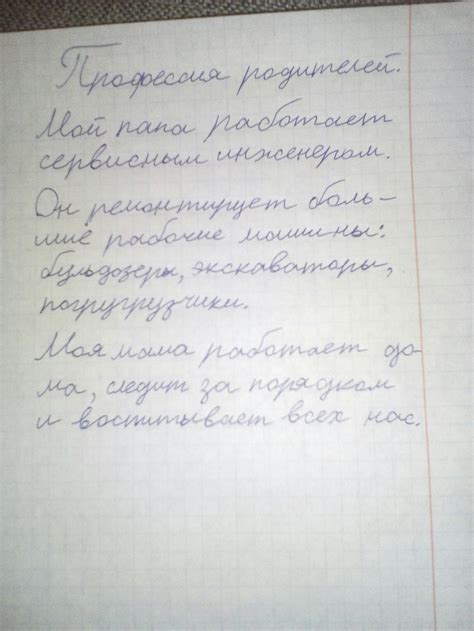 Профессия родителей.
Мой папа работает
сервисным инженером.
Он ремонтирует боль-
шие рабочие машины:
бульдозеры, экскаваторы,
погругрузчики.
Моя мама работает до-
ма, следит за порядком
и воспитывает всех нас.